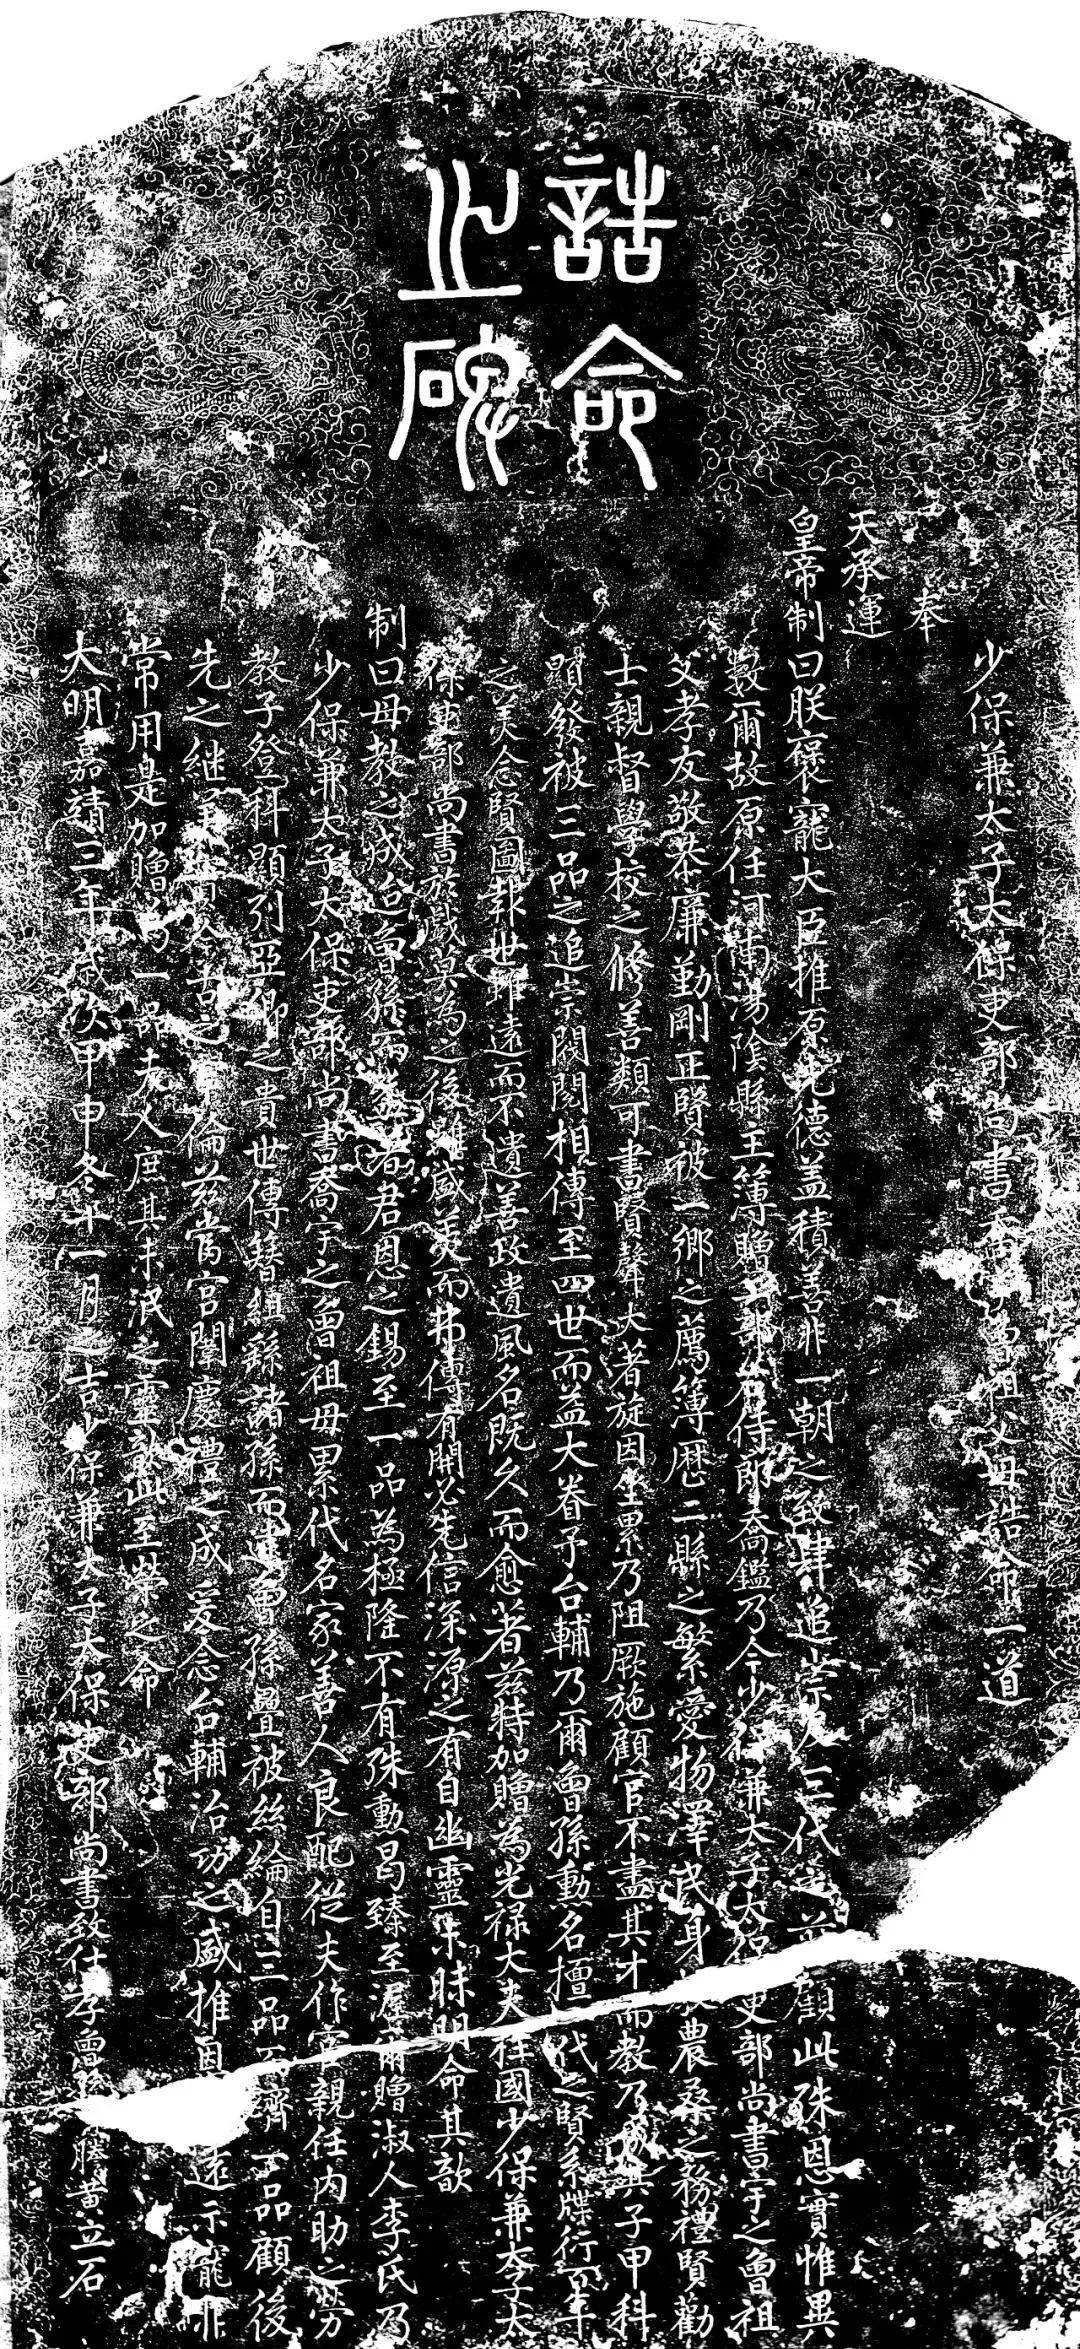 誥命
之碑
少保兼太子太保吏部尚書喬宇曾祖父母誥命一道
奉
天承運
皇帝制曰朕褒寵大臣推原先德盖積善非一朝之致肆追崇及三代之顧此殊恩實惟異
数爾故原任河南湯陰縣主簿贈工部右侍郎喬鑑乃今少保兼太子太保吏部尚書宇之曾祖
父孝友敬恭廉勤剛正賢被一鄉之薦簿歷二縣之繁愛物澤民身農桑之務禮賢勸
士親督學校之修善類可書賢聲大著旋因坐累乃阻厥施顧官不盡其才而教乃其子甲科
顯發被三品之追崇閥閱相傳至四世而益大眷予台輔乃爾曾孫勳名擅一代之賢系牒衍百年
之美念賢圖報世雖遠而不遺善政遺風名既久而愈著兹特加贈為光禄大夫柱國少保兼太子太
保吏部尚書於戲莫為之後雖盛美而弗傳有開必先信深源之有自幽靈未昧明命其歆
制曰母教之成迨曾孫而君恩之錫至一品為極隆不有殊勳曷臻至渥爾贈淑人李氏乃
少保兼太子太保吏部尚書喬宇之曾祖母累代名家善人良配從夫作宦親任内助之勞
教子登科顯列亞卿之貴世傳簪組繇諸孫而逮曾孫疊被絲綸自三品而濟一品顧後
先之继美古之倫兹當宫闈慶禮之成爰念台輔治功之盛推恩遠示寵非
常用是加贈為一品夫人庶其未泯之靈歆此至榮之命
大明嘉靖三年歲次甲申冬十一月之吉少保兼太子太保吏部尚書致仕孝曾孫謄黃立石